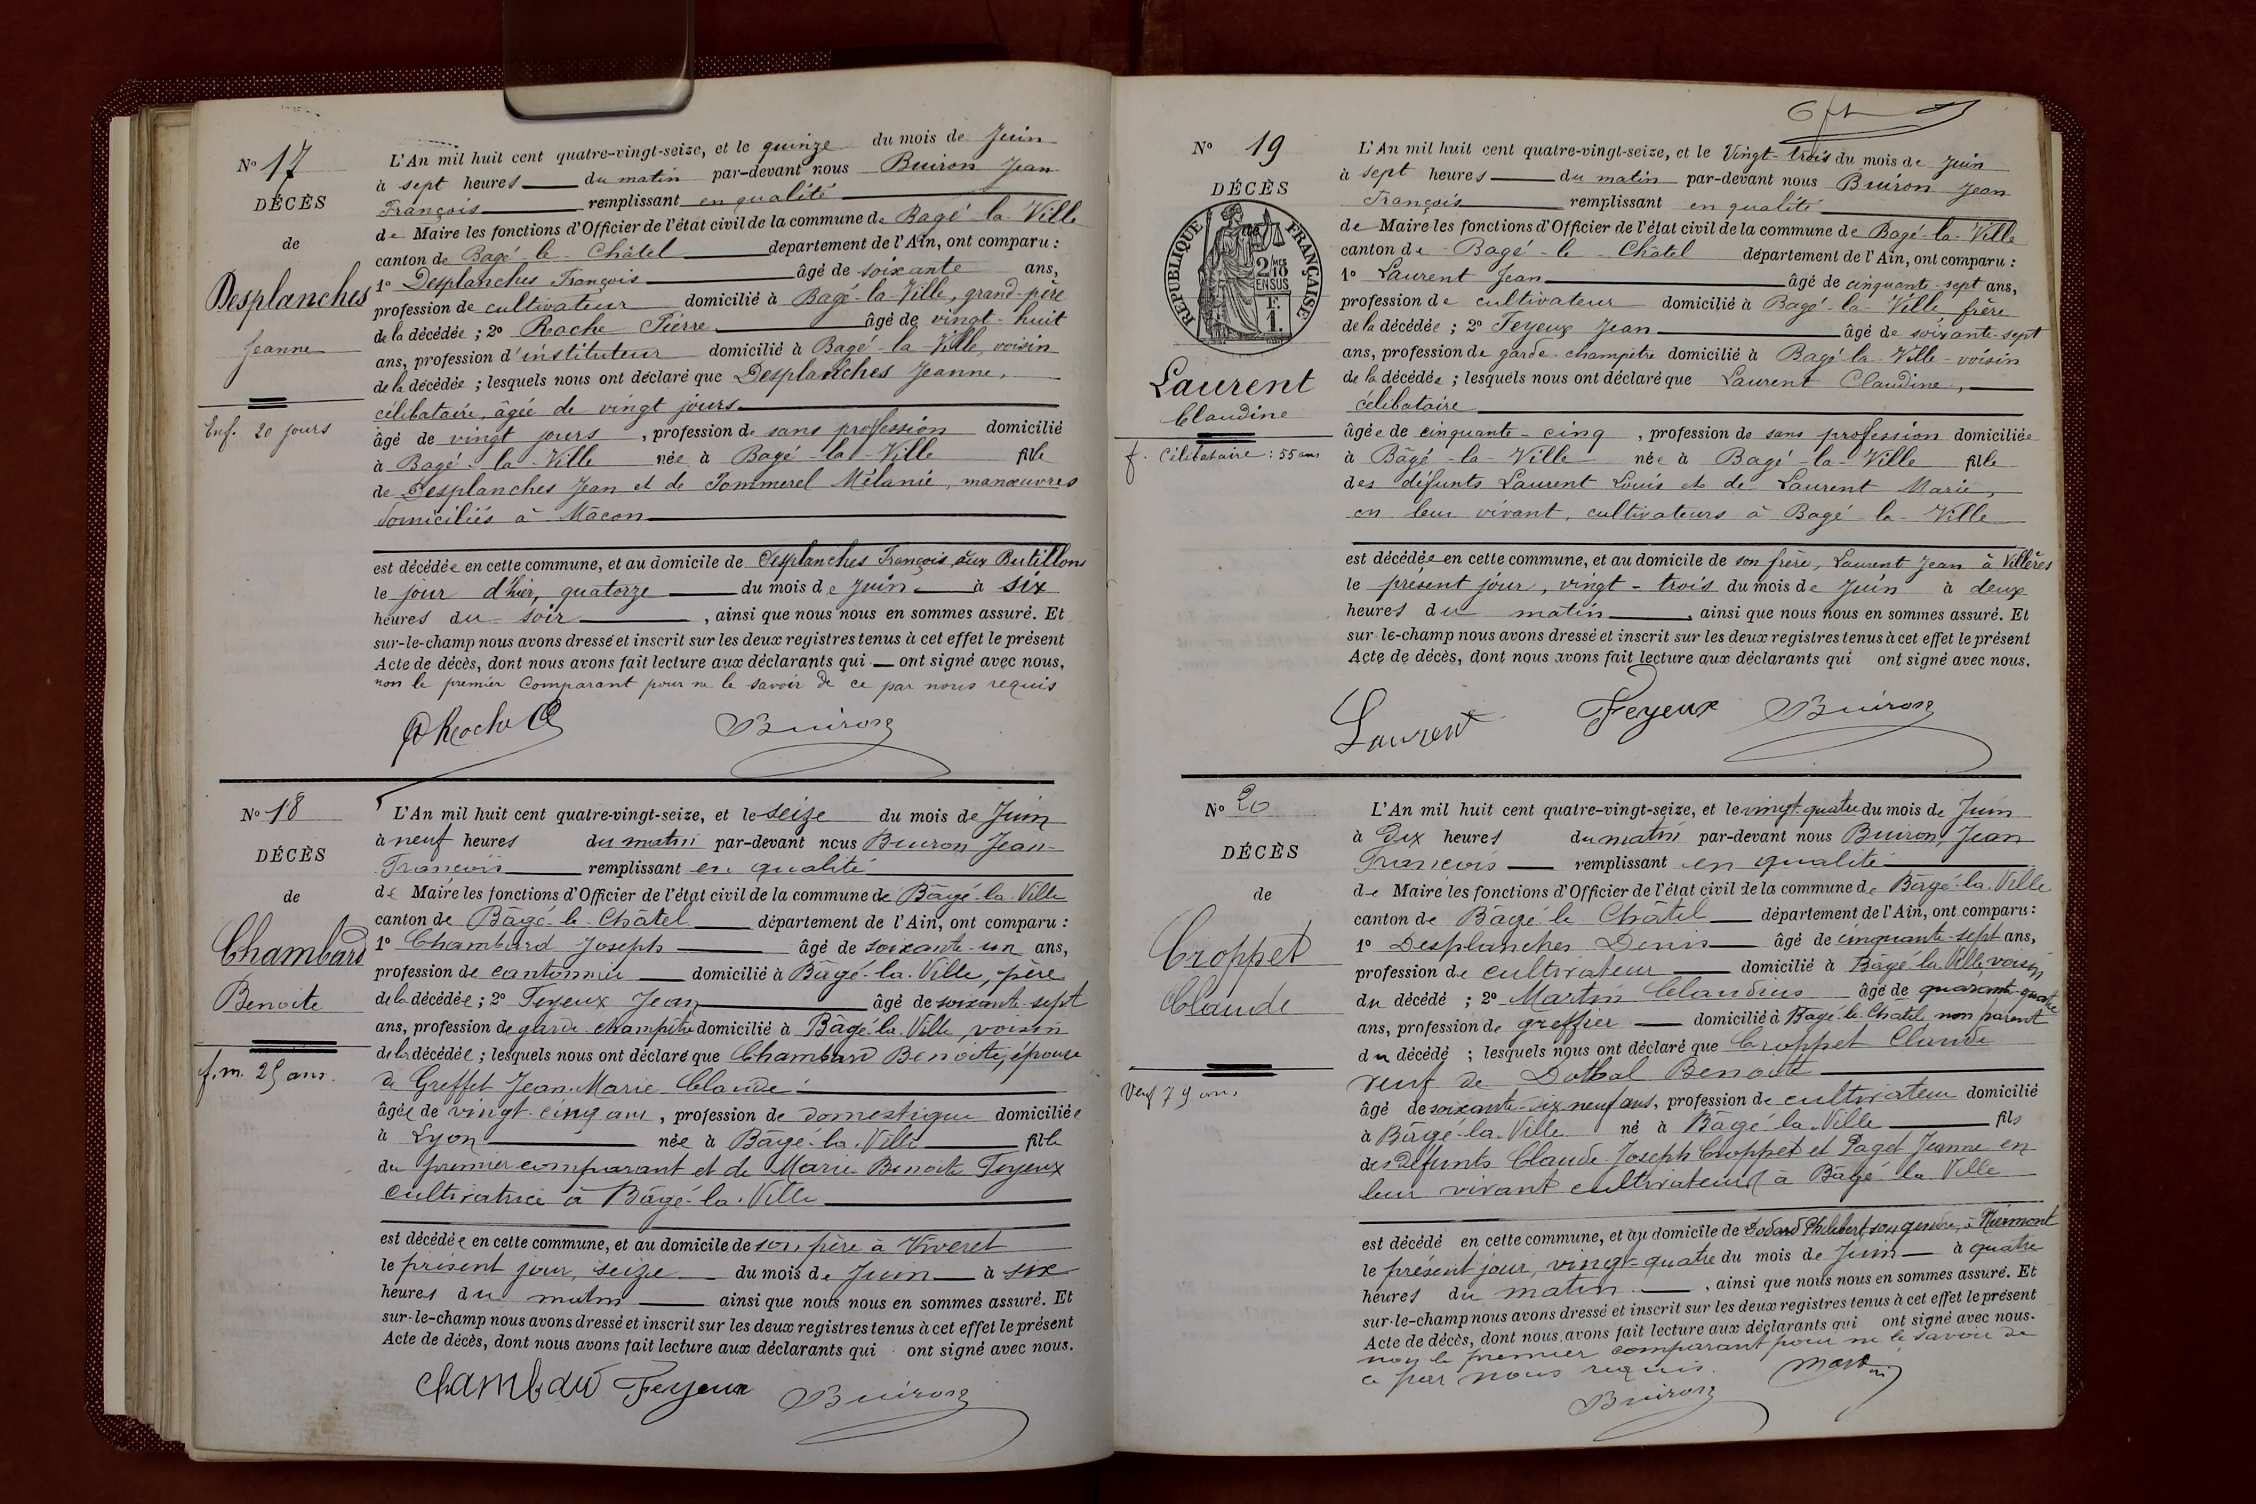 Nº 17
DÉCÈS
de
Desplanches
Jeanne
Enf. 20 jours
L'An mil huit cent quatre-vingt-seize, et le quinze du mois de Juin
à sept heures du matin par-devant nous Buiron Jean
François remplissant en qualité
de Maire les fonctions d'Officier de l'état civil de la commune de Bagé-la-Ville
canton de Bagé-le-Châtel département de l'Ain, ont comparu :
1º Desplanches François âgé de soixante ans,
profession de cultivateur domicilié à Bagé-la-Ville, grand-père
de la décédée ; 2º Roche Pierre âgé de vingt-huit
ans, profession d'instituteur domicilié à Bagé-la-Ville, voisin
de la décédée ; lesquels nous ont déclaré que Desplanches Jeanne,
célibataire, âgée de vingt jours
âgé de vingt jours, profession de sans profession domicilié
à Bagé-la-Ville née à Bagé-la-Ville fille
de Desplanches Jean et de Pommerel Mélanie, manœuvres
domiciliés à Mâcon
est décédée en cette commune, et au domicile de Desplanches François, aux Butillons
le jour d'hier, quatorze du mois de Juin à six
heures du soir, ainsi que nous nous en sommes assuré. Et
sur-le-champ nous avons dressé et inscrit sur les deux registres tenus à cet effet le présent
Acte de décès, dont nous avons fait lecture aux déclarants qui ont signé avec nous,
non le premier comparant pour ne le savoir de ce par nous requis
Roche Buiron
Nº 18
DÉCÈS
de
Chambard
Benoite
f. m. 25 ans.
L'An mil huit cent quatre-vingt-seize, et le seize du mois de Juin
à neuf heures du matin par-devant nous Buiron Jean-
François remplissant en qualité
de Maire les fonctions d'Officier de l'état civil de la commune de Bâgé-la-Ville
canton de Bâgé-le-Châtel département de l'Ain, ont comparu :
1º Chambard Joseph âgé de soixante-un ans,
profession de cantonnier domicilié à Bâgé-la-Ville, père
de la décédée ; 2º Feyeux Jean âgé de soixante-sept
ans, profession de garde-champêtre domicilié à Bâgé-la-Ville, voisin
de la décédée ; lesquels nous ont déclaré que Chambard Benoite, épouse
de Greffet Jean-Marie Claude
âgée de vingt-cinq ans, profession de domestique domiciliée
à Lyon née à Bâgé-la-Ville fille
du premier comparant et de Marie Benoite Feyeux
cultivatrice à Bâgé-la-Ville
est décédée en cette commune, et au domicile de son père à Viveret
le présent jour, seize du mois de Juin à six
heures du matin ainsi que nous nous en sommes assuré. Et
sur-le-champ nous avons dressé et inscrit sur les deux registres tenus à cet effet le présent
Acte de décès, dont nous avons fait lecture aux déclarants qui ont signé avec nous.
Chambard Feyeux Buiron
Nº 19
DÉCÈS
RÉPUBLIQUE FRANÇAISE
2/10 EN SUS
F. 1.
Laurent
Claudine
f. Célibataire : 55 ans
L'An mil huit cent quatre-vingt-seize, et le Vingt-trois du mois de Juin
à sept heures du matin par-devant nous Buiron Jean
François remplissant en qualité
de Maire les fonctions d'Officier de l'état civil de la commune de Bagé-la-Ville
canton de Bagé-le-Châtel département de l'Ain, ont comparu :
1º Laurent Jean âgé de cinquante-sept ans,
profession de cultivateur domicilié à Bagé-la-Ville frère
de la décédée ; 2º Feyeux Jean âgé de soixante-sept
ans, profession de garde-champêtre domicilié à Bagé-la-Ville-voisin
de la décédée ; lesquels nous ont déclaré que Laurent Claudine,
célibataire
âgée de cinquante-cinq, profession de sans profession domiciliée
à Bâgé-la-Ville née à Bagé-la-Ville fille
des défunts Laurent Louis et de Laurent Marie,
en leur vivant, cultivateurs à Bagé-la-Ville
est décédée en cette commune, et au domicile de son frère, Laurent Jean à Villères
le présent jour, vingt-trois du mois de Juin à deux
heures du matin, ainsi que nous nous en sommes assuré. Et
sur-le-champ nous avons dressé et inscrit sur les deux registres tenus à cet effet le présent
Acte de décès, dont nous avons fait lecture aux déclarants qui ont signé avec nous.
Laurent Feyeux Buiron
Nº 20
DÉCÈS
de
Croppet
Claude
Veuf 79 ans,
L'An mil huit cent quatre-vingt-seize, et le vingt-quatre du mois de Juin
à Dix heures du matin par-devant nous Buiron, Jean
François remplissant en qualité
de Maire les fonctions d'Officier de l'état civil de la commune de Bâgé-la-Ville
canton de Bâgé-le-Châtel département de l'Ain, ont comparu :
1º Desplanches Denis âgé de cinquante-sept ans,
profession de cultivateur domicilié à Bâgé-la-Ville, voisin
du décédé ; 2º Martin Claudius âgé de quarante-quatre
ans, profession de greffier domicilié à Bâgé-le-Châtel non parent
du décédé ; lesquels nous ont déclaré que Croppet Claude
veuf de Benoite
âgé de soixante-dix-neuf ans, profession de cultivateur domicilié
à Bâgé-la-Ville né à Bâgé-la-Ville fils
des défunts Claude-Joseph Croppet et Paget Jeanne en
leur vivant cultivateurs à Bâgé-la-Ville
est décédé en cette commune, et au domicile de Dodard Philibert, son gendre, à Niermont
le présent jour, vingt-quatre du mois de Juin à quatre
heures du matin, ainsi que nous nous en sommes assuré. Et
sur-le-champ nous avons dressé et inscrit sur les deux registres tenus à cet effet le présent
Acte de décès, dont nous avons fait lecture aux déclarants qui ont signé avec nous.
non le premier comparant pour ne le savoir de
ce par nous requis.
Martin
Buiron